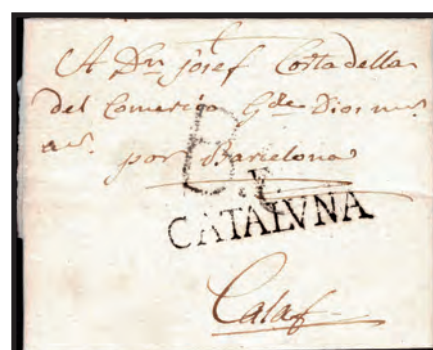 A Dn. Josef Cortadella
del Comersio Gde. Dios ms.
as.
por Barcelona
B.
V.
CATALVNA
Calaf